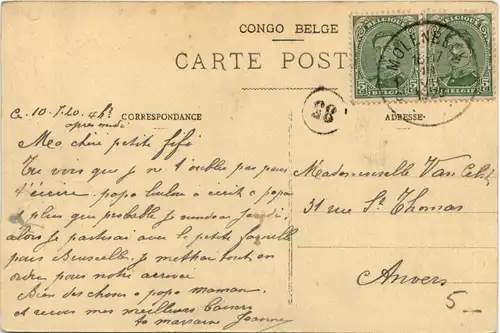 CONGO BELGE
CARTE POST
BELGIQUE BELGIQUE
5 5 5
BELGIË BELGIË
MOLENBEEK
Ce 10-7-20. 4h½
après midi
CORRESPONDANCE
ADRESSE
28
Ma chère petite Fifi
Tu vois que je ne t'oublie pas pour
t'écrire. papa a écrit a papa
plus que probable je viendrai jeudi,
alors je partirai avec le petite
pour Bruxelles. Je mettrai tout en
ordre pour notre arrivée
Bien des choses a papa maman.
et reçois mes meilleurs baisers
ta marraine Jeanne
Mademoiselle Van
31 rue St Thomas
Anvers
5-